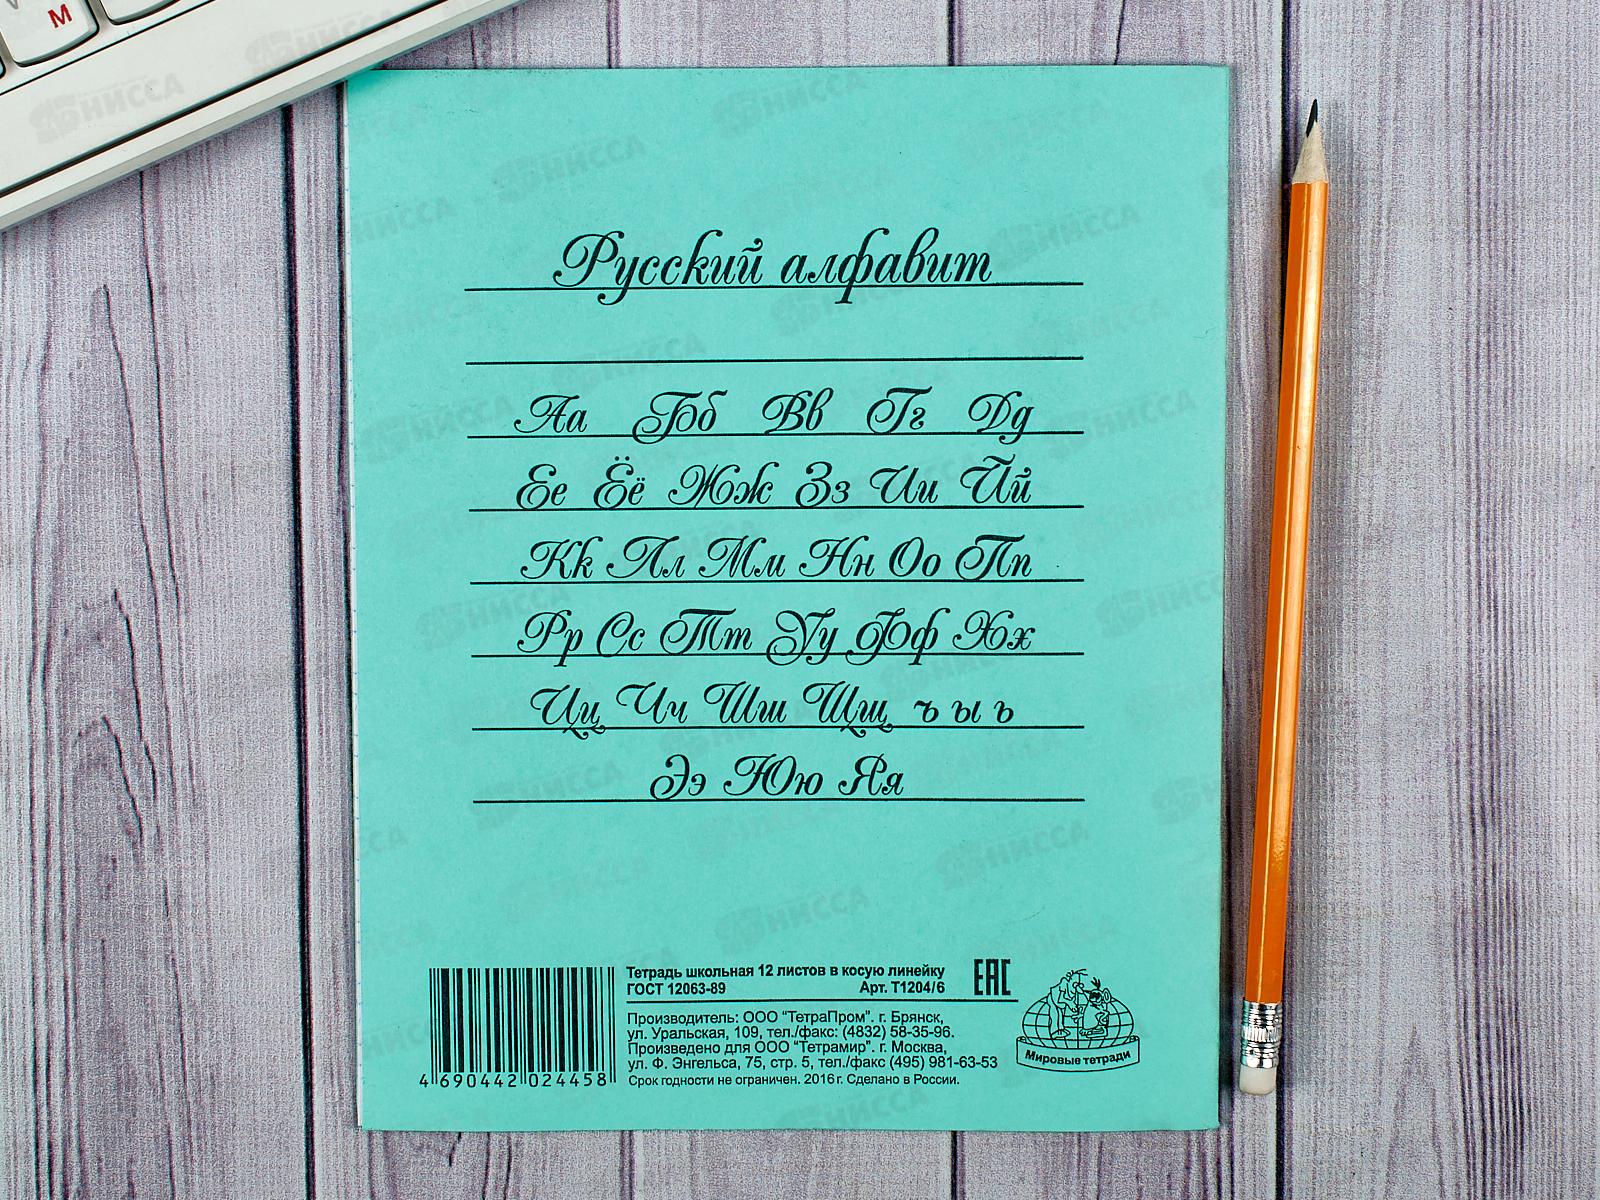 М
Русский алфавит
Аа Бб Вв Гг Дд
Ее Ёё Жж Зз Ии Йй
Кк Лл Мм Нн Оо Пп
Рр Сс Тт Уу Фф Хх
Цц Чч Шш Щщ ъ ы ь
Ээ Юю Яя
Тетрадь школьная 12 листов в косую линейку
ГОСТ 12063-89 Арт. Т1204/6
ЕАС
Производитель: ООО "ТетраПром". г. Брянск,
ул. Уральская, 109, тел./факс: (4832) 58-35-96.
Произведено для ООО "Тетрамир". г. Москва,
ул. Ф. Энгельса, 75, стр. 5, тел./факс (495) 981-63-53
Срок годности не ограничен. 2016 г. Сделано в России.
4 690442 024458
Мировые тетради
НИССА